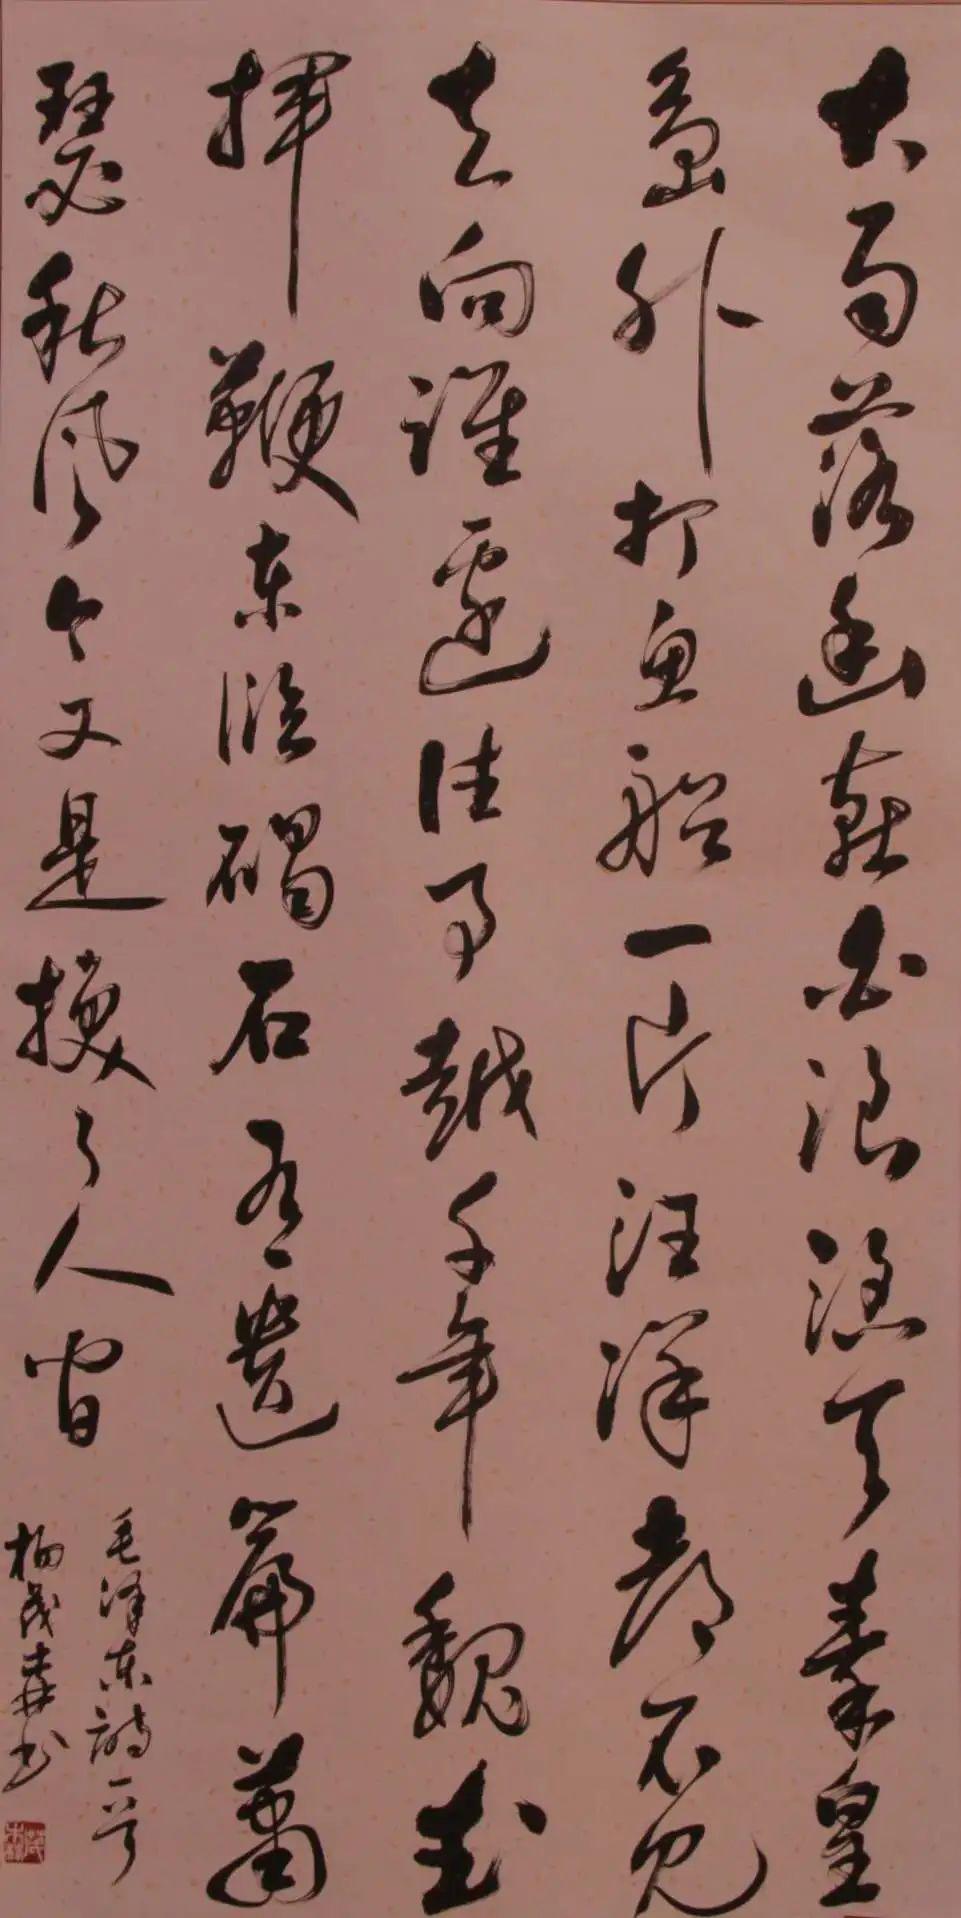 大雨落幽燕白浪滔天秦皇
岛外打鱼船一片汪洋都不见
知向谁边往事越千年魏武
挥鞭东临碣石有遗篇萧
瑟秋风今又是换了人间
毛泽东诗一首
茂 书